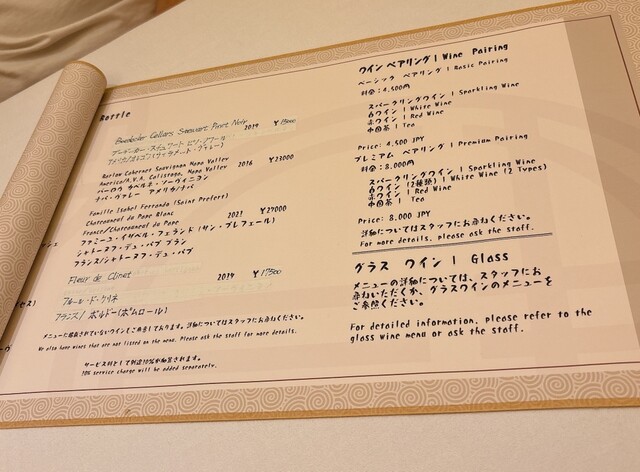 Bottle
Beaukoler Cellars Stewart Pinot Noir 2019 ¥15000
Barlow Cabernet Sauvignon Napa Valley 2016 ¥23000
America/A.V.A. Calistoga, Napa Valley
バーロウ カベルネ・ソーヴィニヨン
ナパ・ヴァレー アメリカ/ナパ
Famille Isabel Ferrando (Saint Prefert)
Chateauneuf du Pape Blanc 2021 ¥29000
France/Chateauneuf du Pape
ファミーユ・イザベル・フェランド (サン・プレフェール)
シャトーヌフ・デュ・パプ ブラン
フランス/シャトーヌフ・デュ・パプ
Fleur de Clinet 2014 ¥17500
フルール・ド・クリネ
フランス/ ボルドー(ポムロール)
メニューに掲載されていないワインもご用意しております。詳細についてはスタッフにお尋ねください。
We also have wines that are not listed on the menu. Please ask the staff for more details.
サービス料として別途10%が加算されます。
10% service charge will be added separately.
ワイン ペアリング | Wine Pairing
ベーシック ペアリング | Basic Pairing
料金: 4,500円
スパークリングワイン | Sparkling Wine
白ワイン | White Wine
赤ワイン | Red Wine
中国茶 | Tea
Price: 4,500 JPY
プレミアム ペアリング | Premium Pairing
料金: 8,000円
スパークリングワイン | Sparkling Wine
白ワイン (2種類) | White Wine (2 Types)
赤ワイン | Red Wine
中国茶 | Tea
Price: 8,000 JPY
詳細についてはスタッフにお尋ねください。
For more details, please ask the staff.
グラス ワイン | Glass
メニューの詳細については、スタッフにお
尋ねいただくか、グラスワインのメニューを
ご参照ください。
For detailed information, please refer to the
glass wine menu or ask the staff.